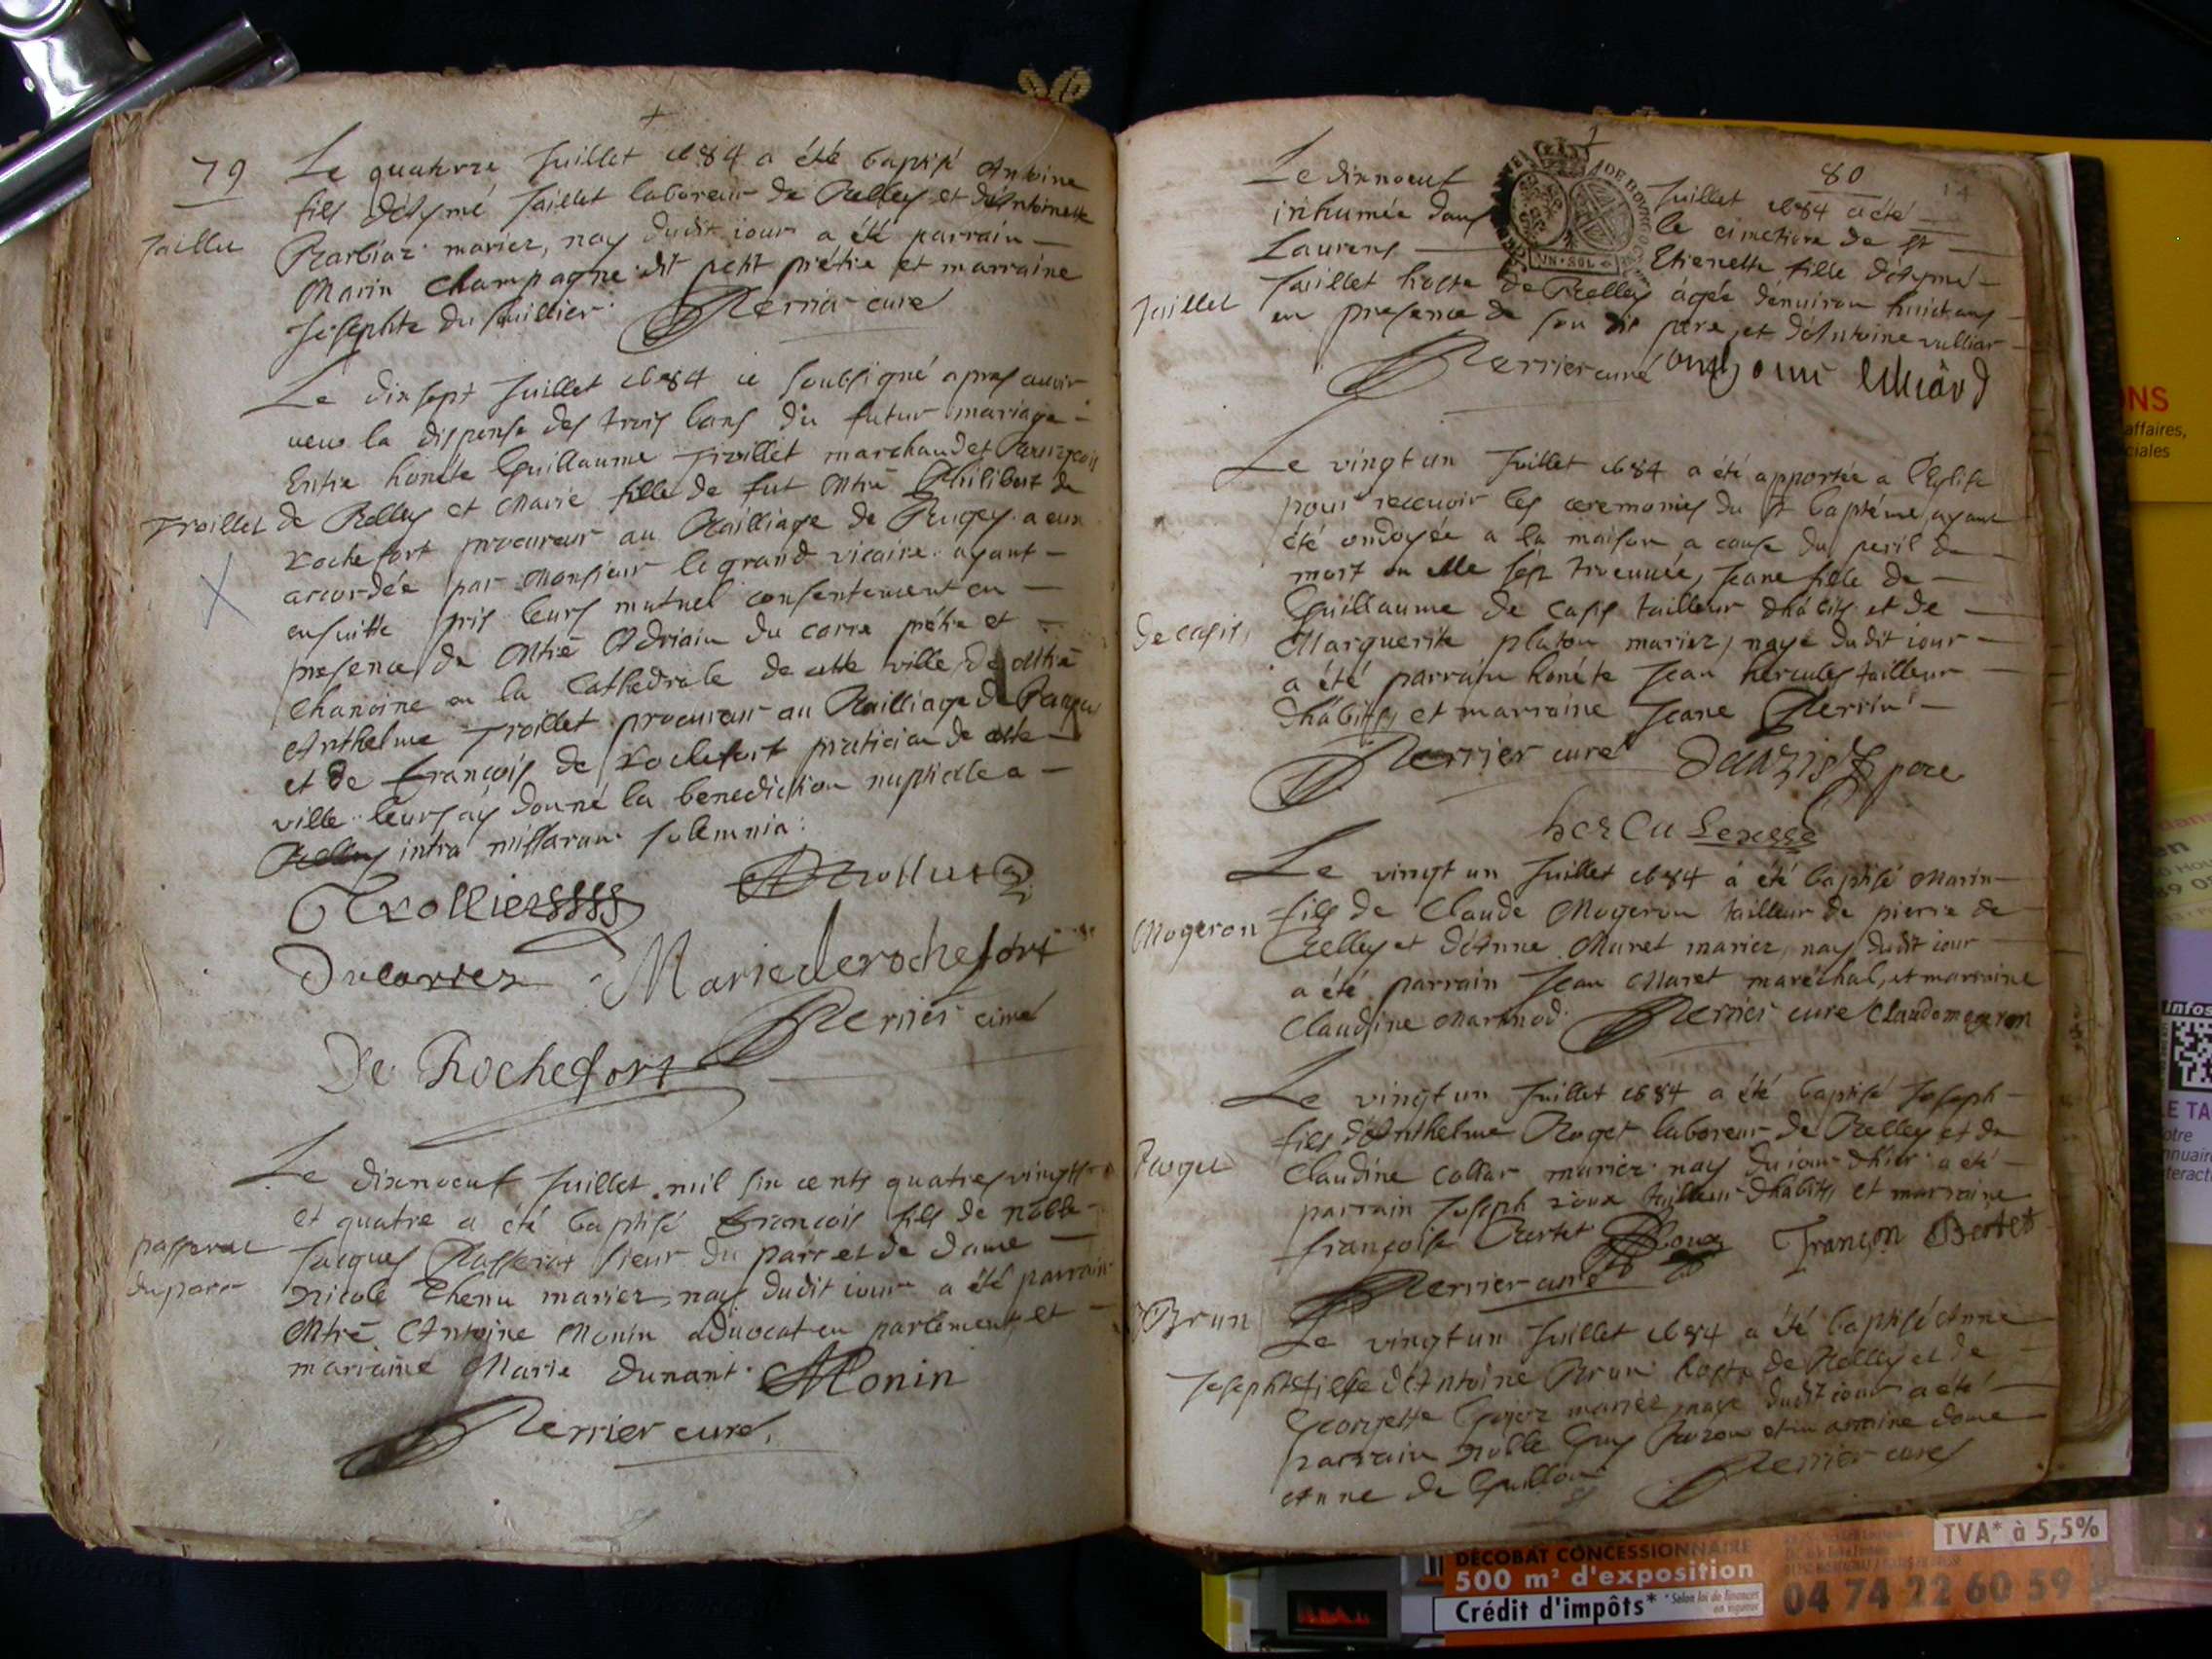 79
Le quatorze Juillet 1684 a été baptisé Antoine
fils d'Aymé Jaillet laboreur de Belley et d'Antoinette
Jaillet
Barbiaz mariez, nay dudit iour a été parrain
Marin Champagne dit petit prétre et marraine
Josephte du Juillier Perrier curé
Le dixsept Juillet 1684 ie soubsigné apres auoir
veu la dispense des trois bans du futur mariage
Entre honéte Guillaume Trollet marchand et Bourgeois
de Belley et Marie fille de fut Mtre Philibert de
Trollet
rochefort procureur au Bailliage de Bugey a eux
accordée par Monsieur le grand vicaire ayant
ensuitte pris leurs mutuel consentement en
presence de Mtre Adrian du carre prétre et
Chanoine en la Cathedrale de cette ville, de Mtre
Anthelme Trollet procureur au Bailliage de Bugey
et de François de rochefort praticien de cette
ville leurs ay donné la benediction nuptialle a
Belley intra missarum solemnia:
Trollier
Ducarrez Mariederochefort
Perrier curé
De Rochefort
Le dixneuf Juillet mil six cents quatres vingts
et quatre a été baptisé François fils de noble
passerat
du parc
Jacques Passerat sieur du parc et de dame
Nicole Chenu mariez, nay dudit iour a été parrain
Mtre Antoine Monin aduocat en parlement, et
marraine Marie Dunant AMonin
Perrier curé,
80
14
Le dixneuf Juillet 1684 a été
inhumée dans le cimetiere de St
Laurens Etienette fille d'Aymé
DE BOVRGO
VN·SOL
Jaillet
Jaillet hoste de Belley ágée d'enuiron huict ans
en presence de son dit pere, et d'Antoine vulliar
Perrier curé
Le vingt un Juillet 1684 a été apportée a l'Eglise
pour receuoir les ceremonies du St baptéme, ayant
été ondoyée a la maison a cause du peril de
mort ou elle s'est trouuée, Jeane fille de
Guillaume de Casis tailleur d'habits et de
De casis,
Marguerite platon mariez, naye dudit iour
a été parrain honéte Jean hercules tailleur
d'habits, et marraine Jeane Perrin
Perrier curé pere
Le vingt un Juillet 1684 á été baptisé Marin
Mogeron
fils de Claude Mogeron tailleur de pierre de
Belley et d'Anne Muret mariez, nay dudit iour
a été parrain Jean Maret maréchal, et marraine
Claudine Martinod Perrier curé Claudomogeron
Le vingt un Juillet 1684 a été baptisé Joseph
fils d'Anthelme Roget laboreur de Belley et de
Roget
Claudine Collar mariez nay du iour d'hier a été
parrain Joseph roux tailleur d'habits et marraine
françoise Bertet Roux Françon Bertet
Perrier curé
Brun
Le vingt un Juillet 1684 a été baptisé Anne
Josephte fille d'Antoine Brun hoste de Belley et de
Georgette mariez, naye dudit iour a été
parrain noble Guy et marraine dame
Anne de Guillon Perrier curé
ONS
affaires,
ciales
Infos
LE TA
DÉCOBAT CONCESSIONNAIRE
500 m² d'exposition
Crédit d'impôts*
TVA* à 5,5%
04 74 22 60 59